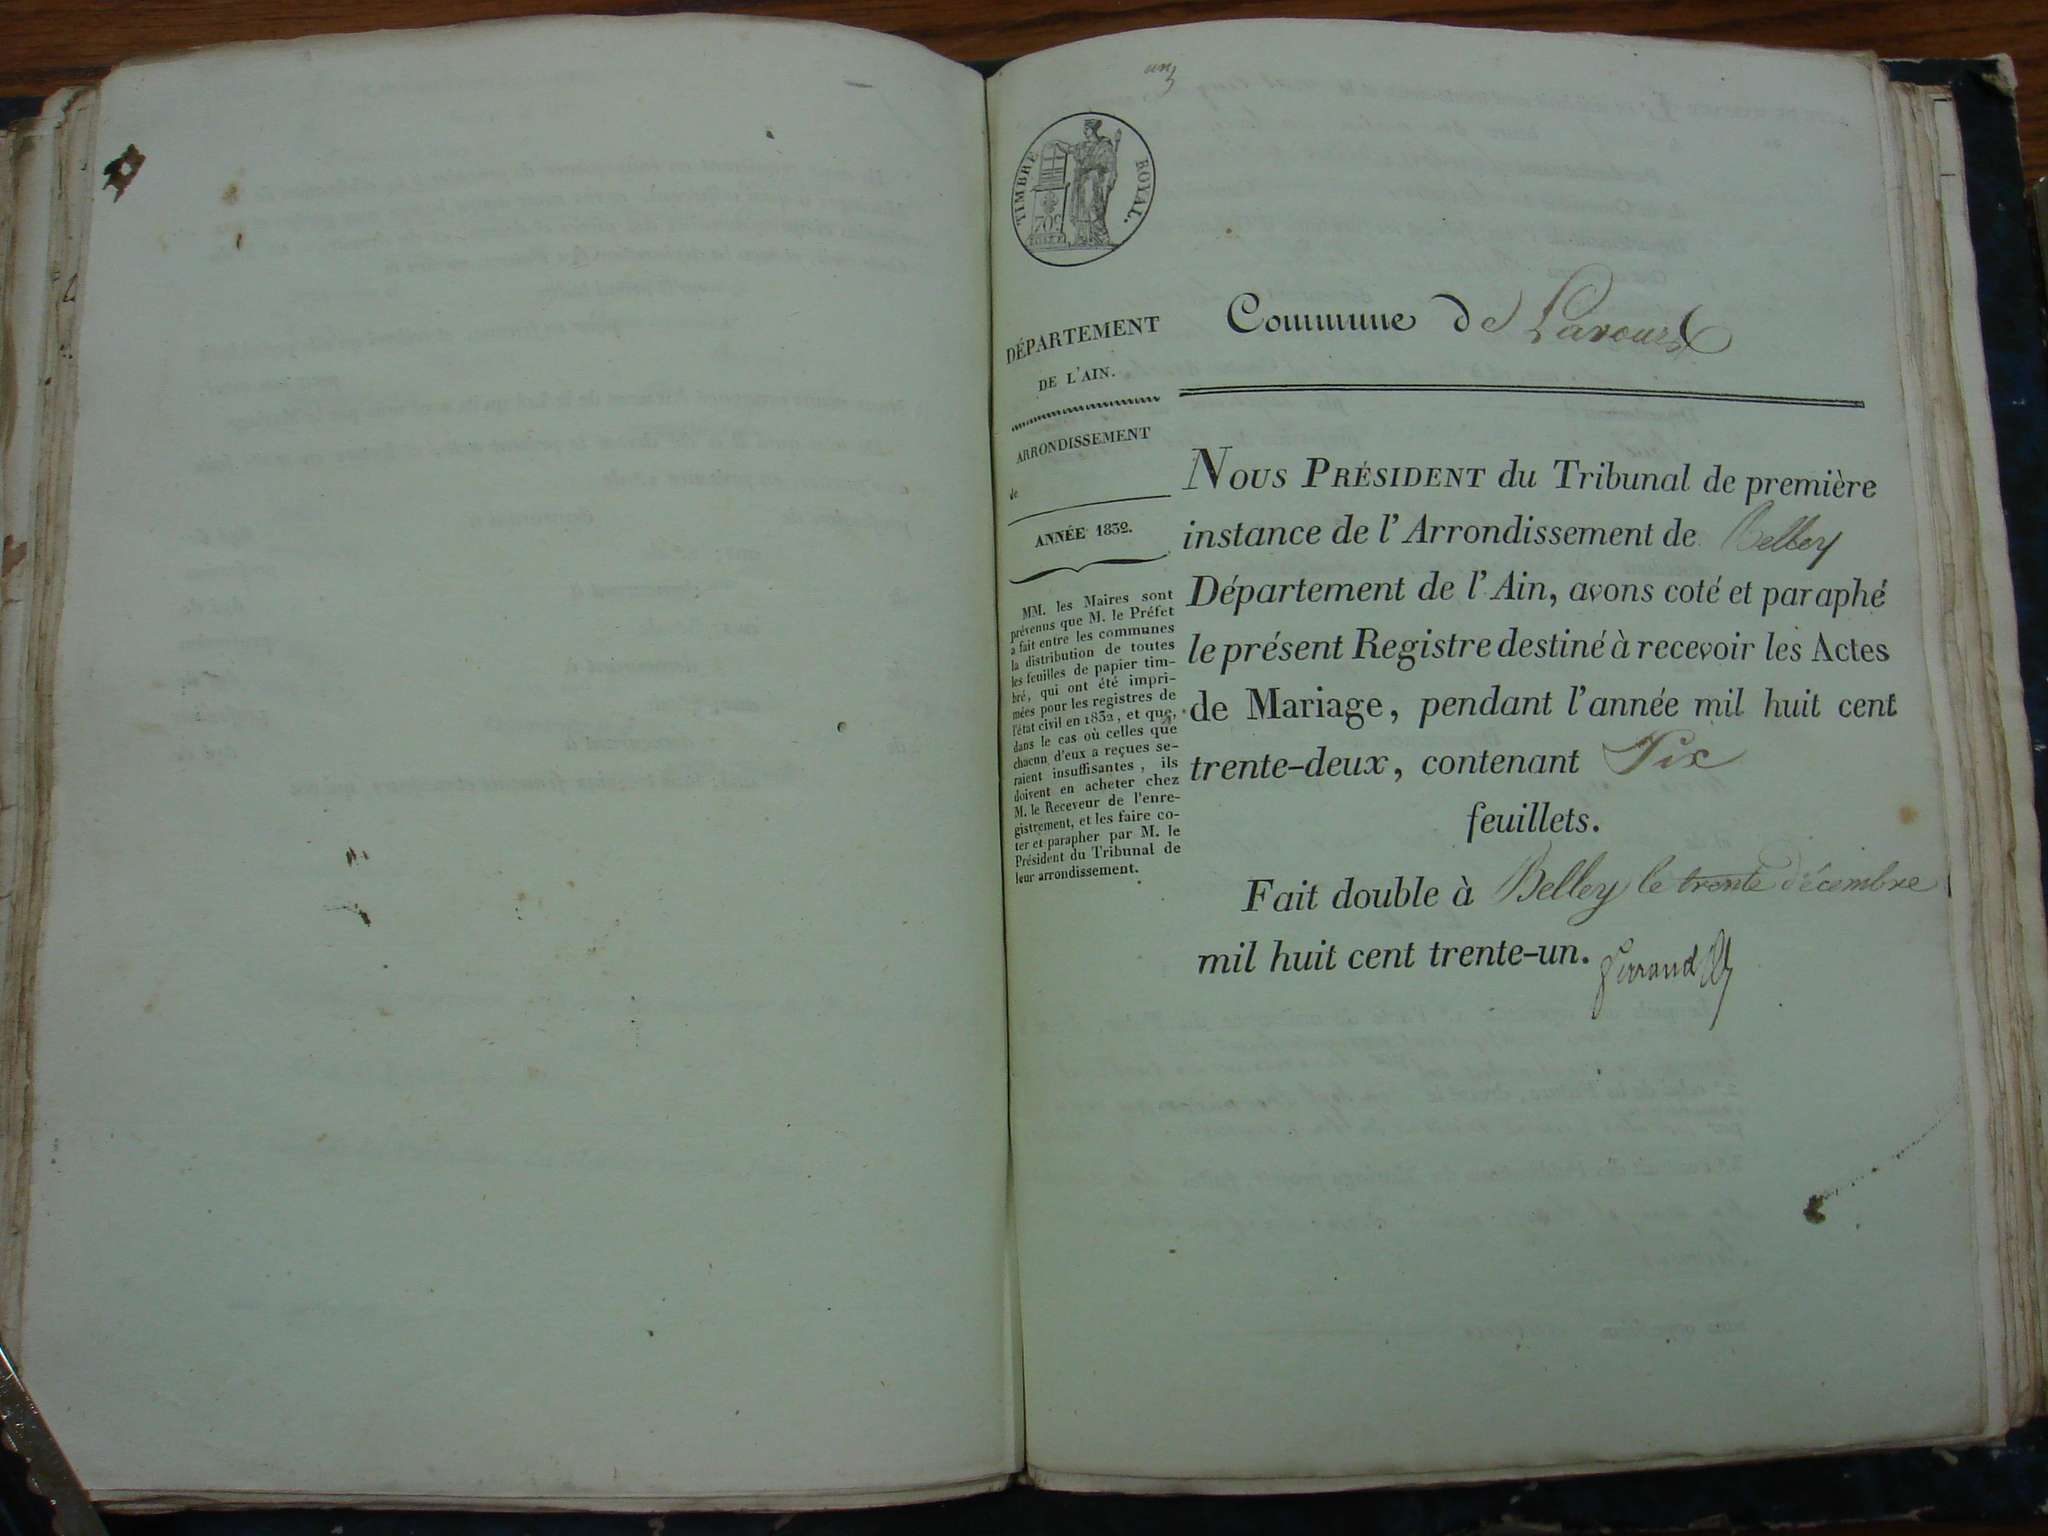 un
TIMBRE ROYAL.
70c
Commune de Lavours
DÉPARTEMENT
DE L'AIN.
ARRONDISSEMENT
de
ANNÉE 1832.
MM. les Maires sont
prévenus que M. le Préfet
a fait entre les communes
la distribution de toutes
les feuilles de papier tim-
bré, qui ont été impri-
mées pour les registres de
l'état civil en 1832, et que,
dans le cas où celles que
chacun d'eux a reçues se-
raient insuffisantes, ils
doivent en acheter chez
M. le Receveur de l'enre-
gistrement, et les faire co-
ter et parapher par M. le
Président du Tribunal de
leur arrondissement.
NOUS PRÉSIDENT du Tribunal de première
instance de l'Arrondissement de Belley
Département de l'Ain, avons coté et paraphé
le présent Registre destiné à recevoir les Actes
de Mariage, pendant l'année mil huit cent
trente-deux, contenant Six
feuillets.
Fait double à Belley le trente décembre
mil huit cent trente-un.